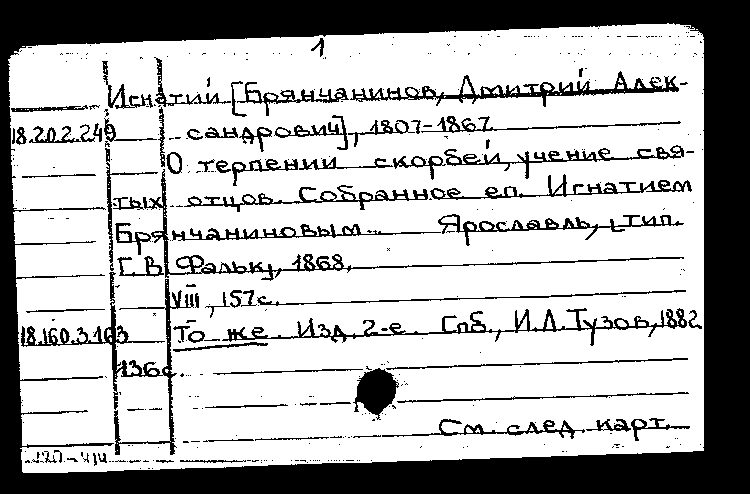 1
Игнатий [Брянчанинов, Дмитрий Алек-
18.202.249 сандрович], 1807-1867
О терпении скорбей, учение свя-
тых отцов. Собранное еп. Игнатием
Брянчаниновым... Ярославль, тип.
Г. В. Фальк, 1868.
VIII, 157 с.
18.160.3.163 То же. Изд. 2-е. Спб., И.Л. Тузов, 1882
136 с.
См. след. карт.